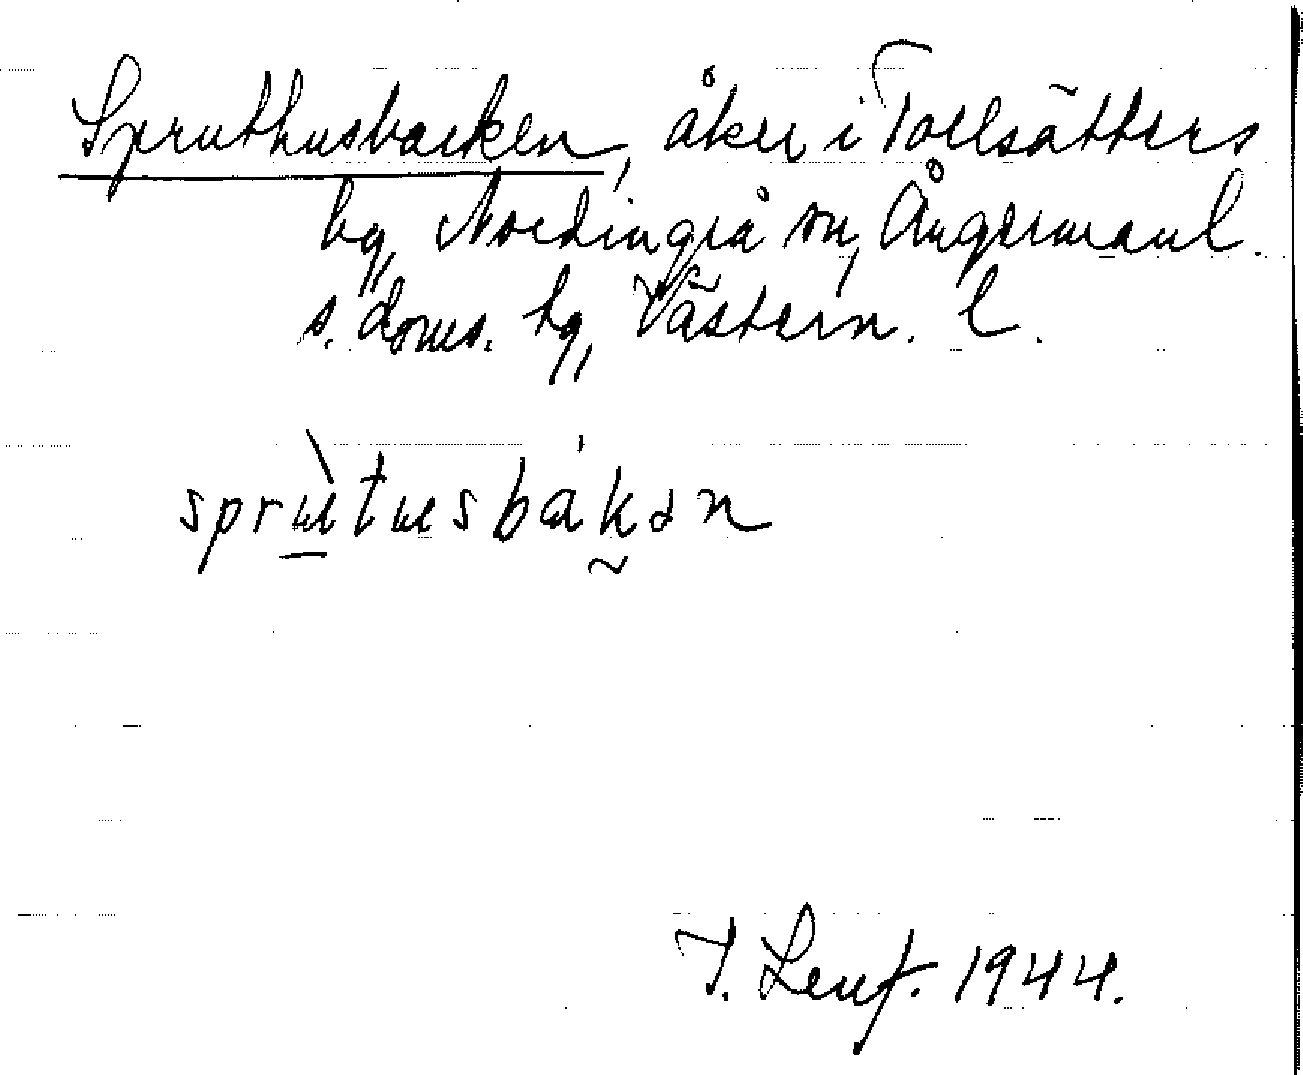 Spruthusbacken, åker i Torrsätters
by, Nordingrå sn, Ångermanl.
s. doms. hg, Västern. l.
sprʉ̀tʉsbákən
T. Lenf. 1944.